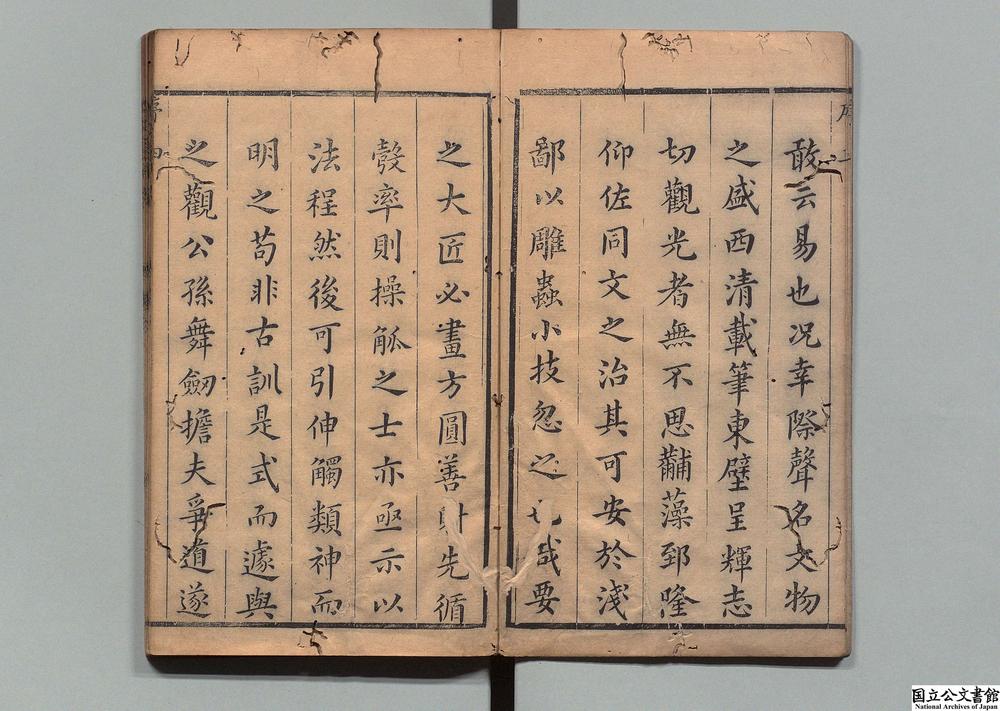 序 三
敢云易也况幸際聲名文物
之盛西清載筆東壁呈輝志
切觀光者無不思黼藻郅隆
仰佐同文之治其可安於淺
鄙以雕蟲小技忽之也哉要
之大匠必畫方圓善射先循
彀率則操觚之士亦亟示以
法程然後可引伸觸類神而
明之苟非古訓是式而遽與
之觀公孫舞劒擔夫爭道遂
序 四
国立公文書館
National Archives of Japan